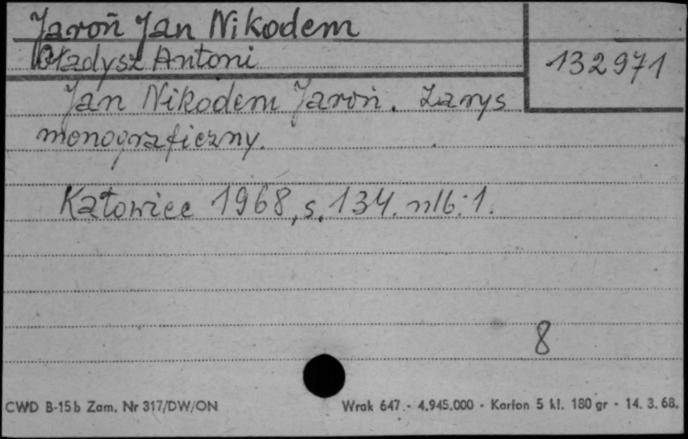 Jaroń Jan Nikodem
Gładysz Antoni
132971
Jan Nikodem Jaroń. Zarys
monograficzny.
Katowice 1968, s. 134. nlb. 1.
8
CWD B-15b Zam. Nr 317/DW/ON
Wrak 647 - 4.945.000 - Karton 5 kl. 180 gr - 14. 3. 68.